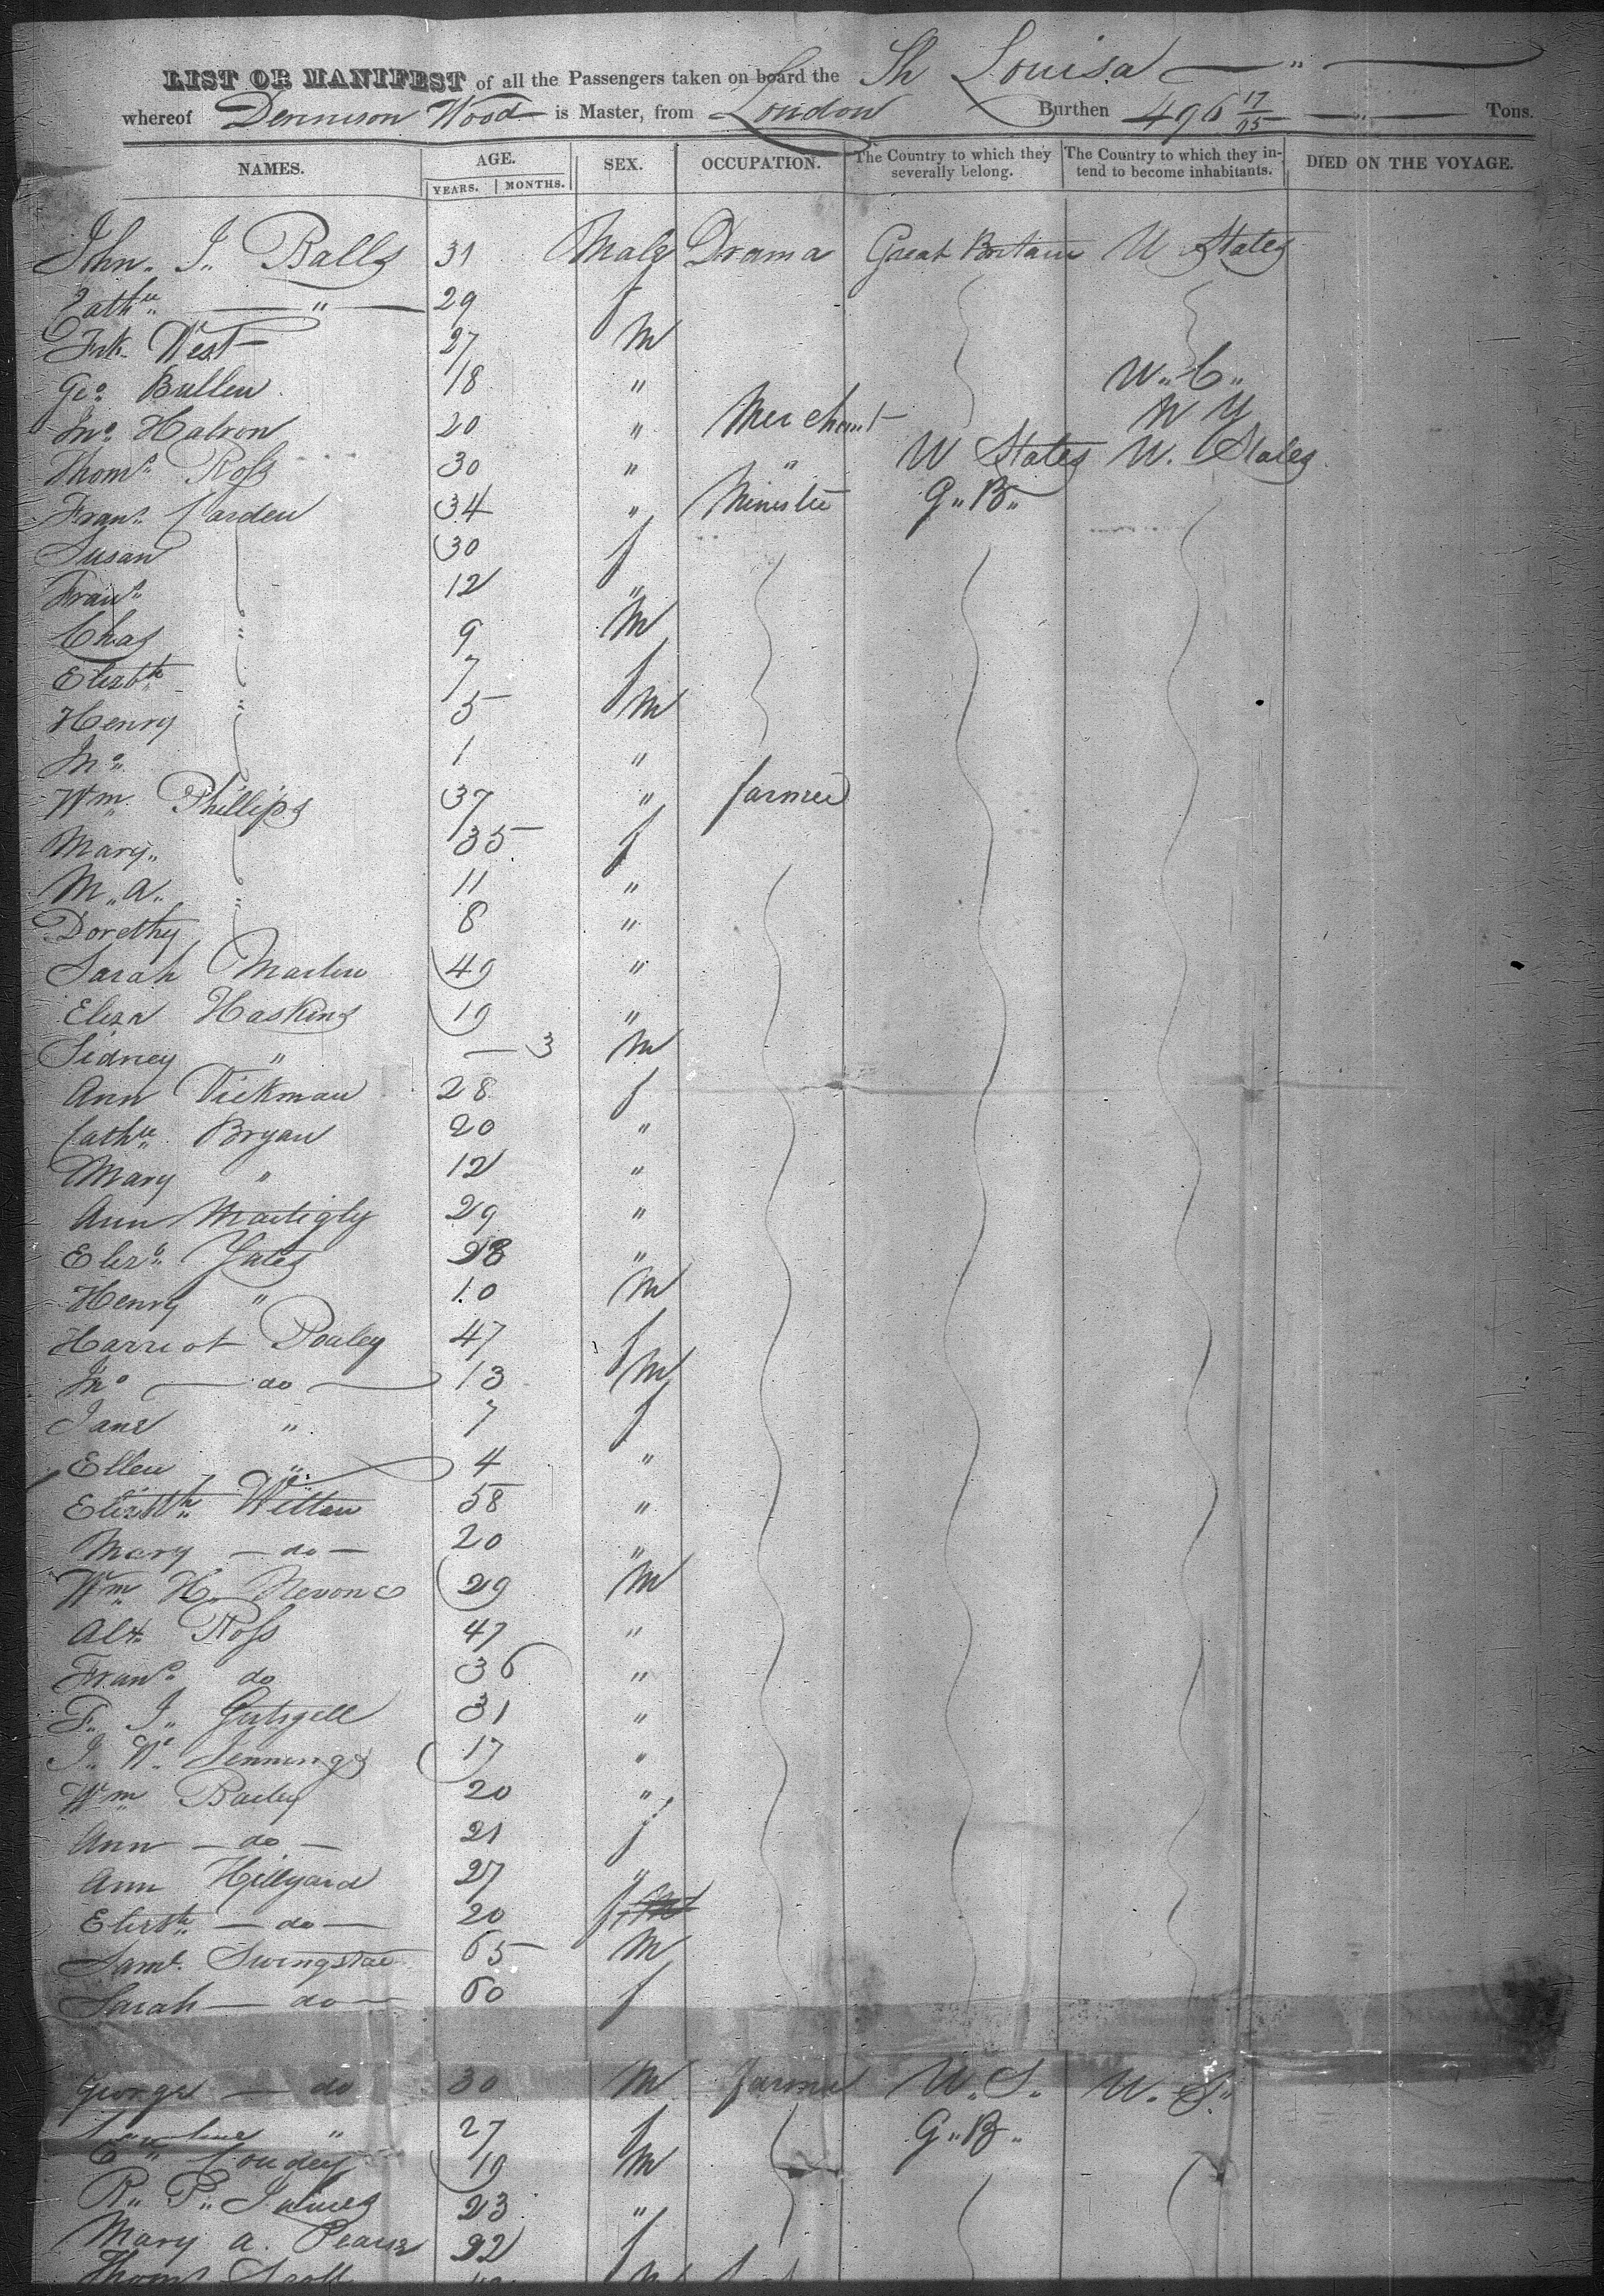 LIST OR MANIFEST of all the Passengers taken on board the Sh Louisa "
whereof Dennison Wood is Master, from London Burthen 496 17/95 " Tons.
NAMES. AGE. YEARS. MONTHS. SEX. OCCUPATION. The Country to which they severally belong. The Country to which they intend to become inhabitants. DIED ON THE VOYAGE.
Jhn. J. Balls 31 Male Drama Great Britain U States
Cathe " 29 f
Frk West 27 M
Geo Bullen 18 " U.. C..
Jno Halron 20 " Merchant U Y
Thoms Ross 30 " " U States U. States
Frans Carden 34 " Minister G.. B..
Susan 30 f
Frans 12 "
Chas " 9 M
Elizbth 7 f
Henry " 5 M
Jno 1 "
Wm Phillips 37 " farmer
Mary 35 f
M.. A.. " 11 "
Dorethy 8 "
Sarah Martin 49 "
Eliza Haskins 19 "
Sidney " — 3 M
Ann Vickman 28 f
Cathe Bryan 20 "
Mary " 12 "
Ann 29 "
Eliza Yates 28 "
Henry " 10 M
Harriot Pouley 47 f
Jno — do — 13 M
Jane " 7 f
Ellen " 4 "
Elizbth Witten 58 "
Mary — do — 20 "
Wm H. 29 M
Alx Ross 47 "
Frans do 36 "
F.. J.. 31 "
J.. W.. Jennings 17 "
Wm Bailey 20 "
Ann — do — 21 f
Ann Hillyard 27 "
Elizbth — do — 20 f
Saml. 65 M
Sarah — do — 60 f
George — do 30 M farmer U.. S.. U.. S..
Caroline " 27 f G.. B..
19 M
R.. P.. 23 "
Mary A. Pearse 22 f
Thoms Scott